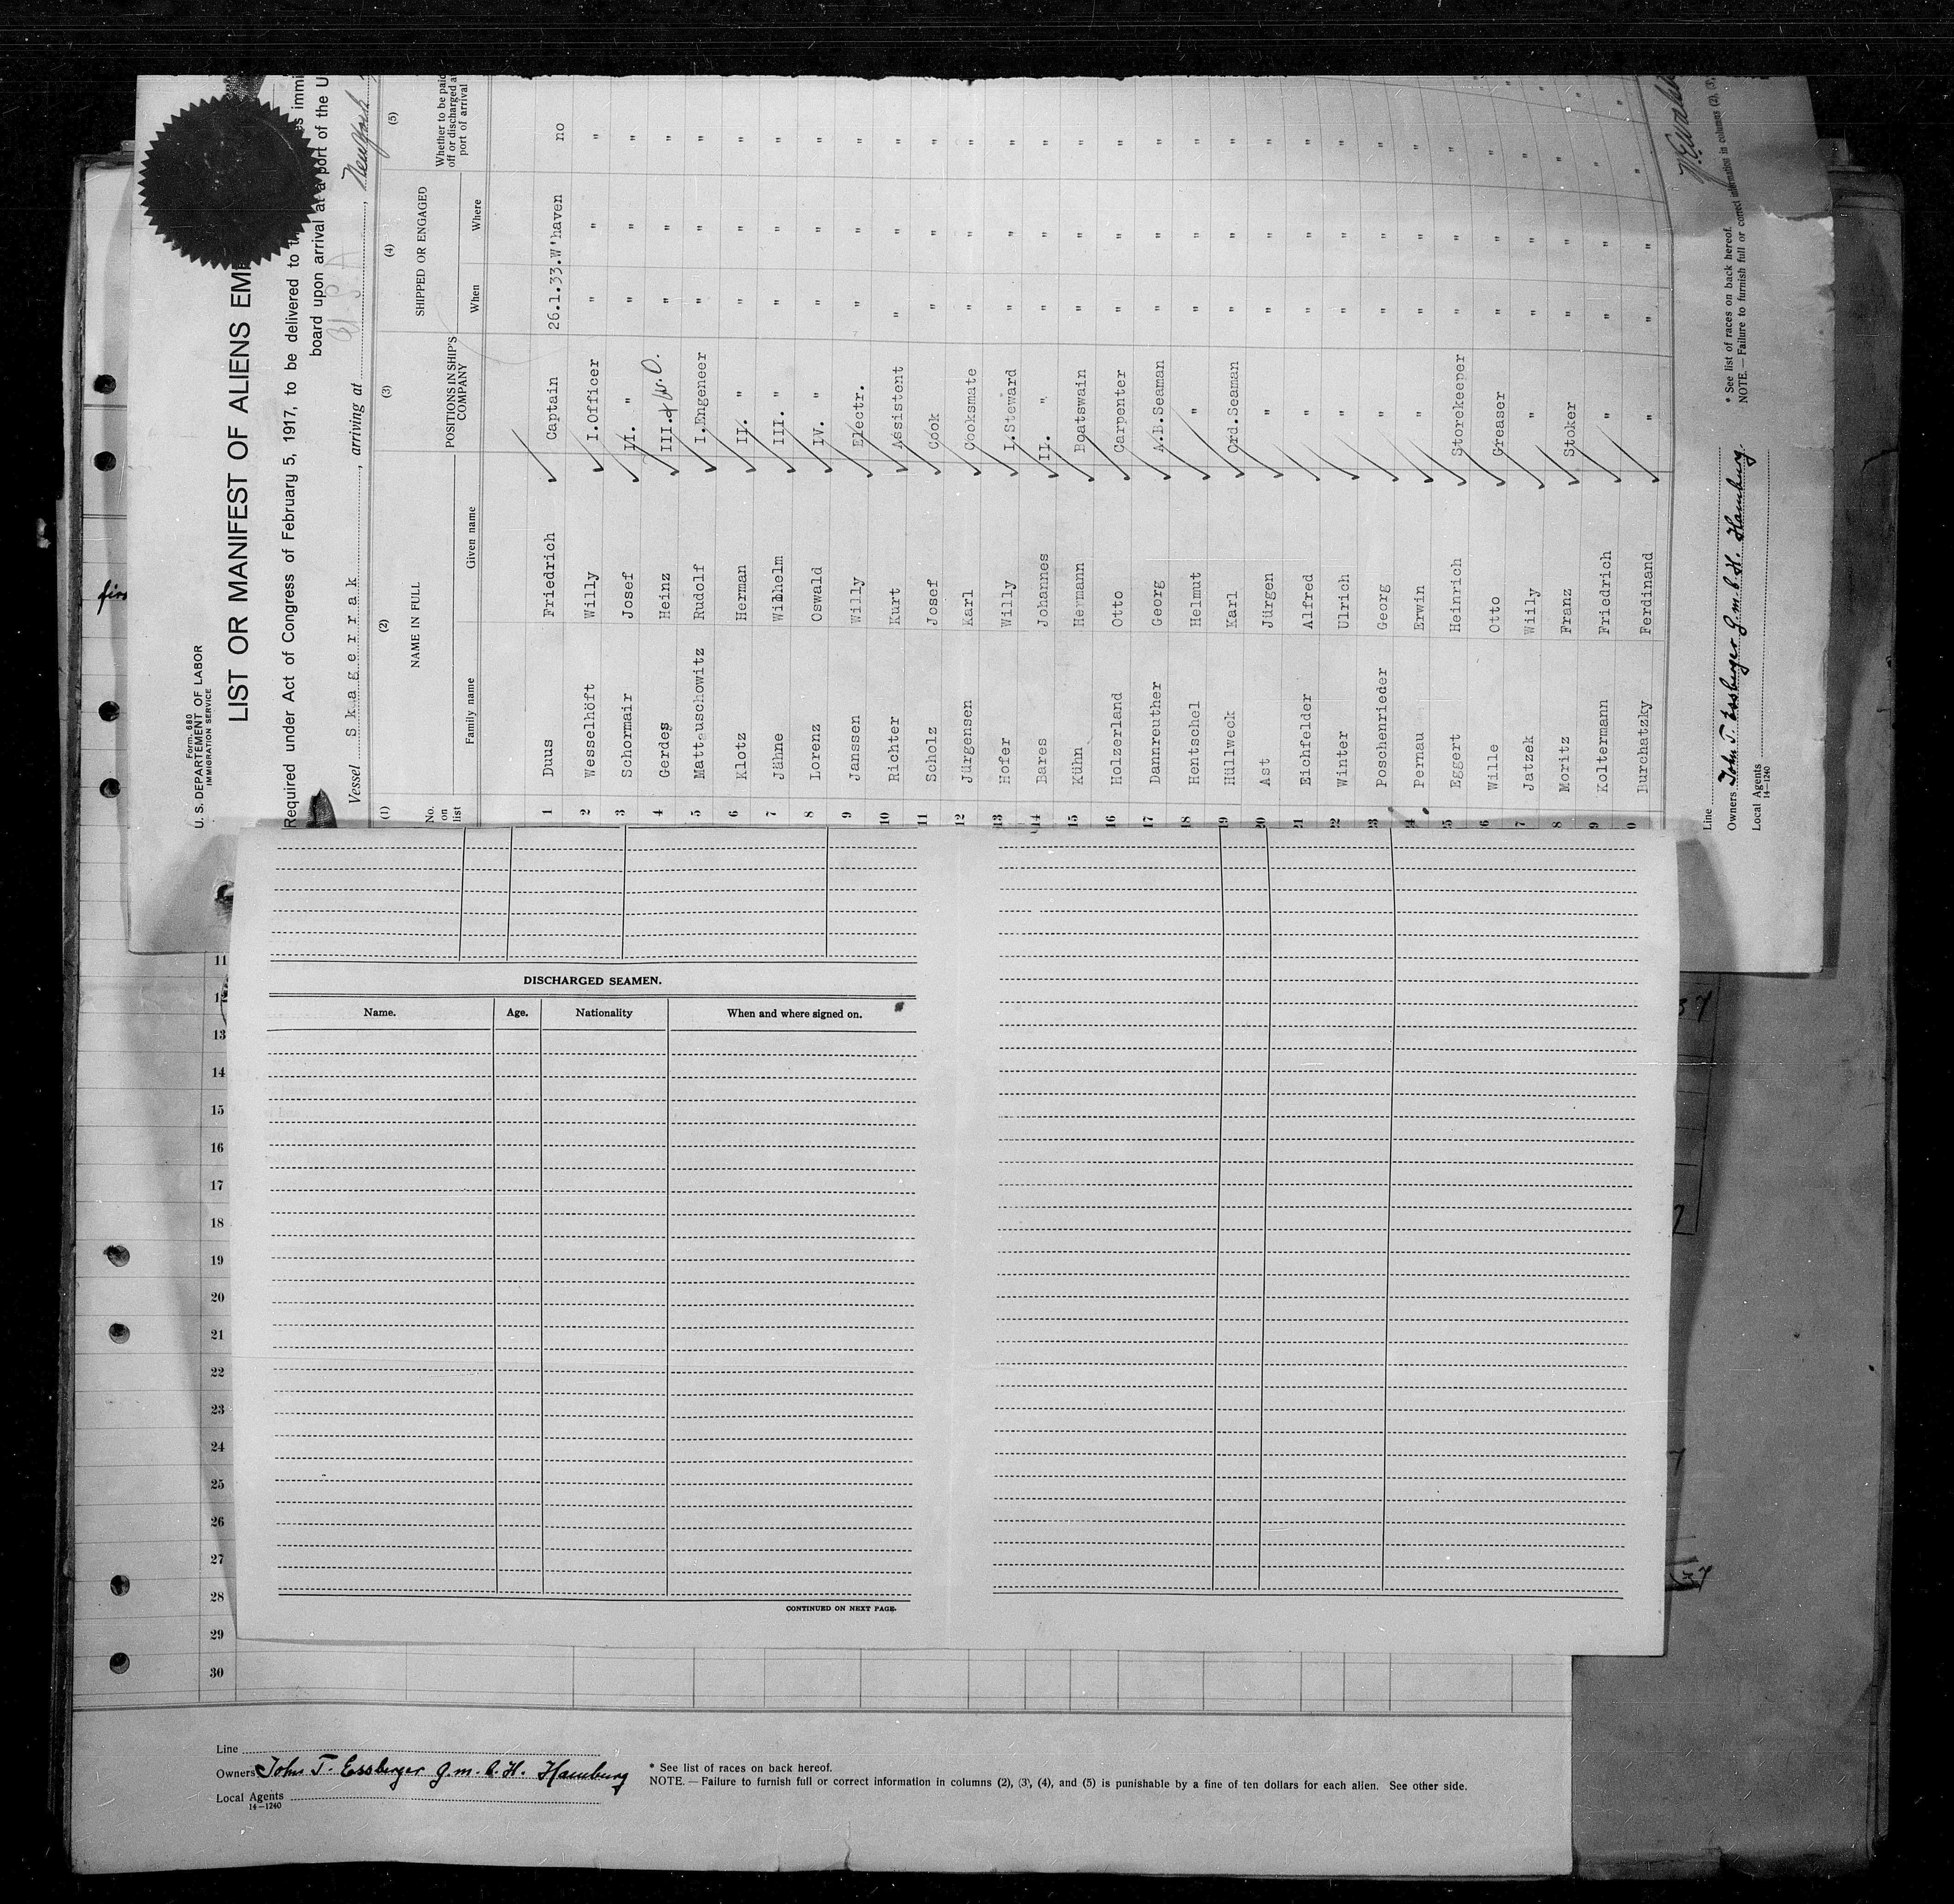 Form 680
U. S. DEPARTMENT OF LABOR
IMMIGRATION SERVICE
LIST OR MANIFEST OF ALIENS
Required under Act of Congress of February 5, 1917, to be delivered to
board upon arrival at a port of the U
Vessel Skagerrak, arriving at New York
(1) (2) (3) (4) (5)
No. on list NAME IN FULL POSITIONS IN SHIP'S COMPANY SHIPPED OR ENGAGED Whether to be paid off or discharged at port of arrival
Family name Given name When Where
1 Duus Friedrich Captain 26.1.33. W'haven no
2 Wesselhöft Willy I.Officer " " "
3 Schormair Josef II. " " " "
4 Gerdes Heinz III. & W.O. " " "
5 Mattauschowitz Rudolf I.Engeneer " " "
6 Klotz Herman II. " " " "
7 Jähne Wilhelm III. " " " "
8 Lorenz Oswald IV. " " " "
9 Janssen Willy Electr. " " "
10 Richter Kurt Assistent " " "
11 Scholz Josef Cook " " "
12 Jürgensen Karl Cooksmate " " "
13 Hofer Willy I.Steward " " "
14 Bares Johannes II. " " " "
15 Kühn Hermann Boatswain " " "
16 Holzerland Otto Carpenter " " "
17 Dannreuther Georg A.B.Seaman " " "
18 Hentschel Helmut " " " "
19 Hüllweck Karl Ord.Seaman " " "
20 Ast Jürgen " " " "
21 Eichfelder Alfred " " " "
22 Winter Ulrich " " " "
23 Poschenrieder Georg " " " "
24 Pernau Erwin " " " "
25 Eggert Heinrich Storekeeper " " "
6 Wille Otto Greaser " " "
7 Jatzek Willy " " " "
8 Moritz Franz Stoker " " "
9 Koltermann Friedrich " " " "
0 Burchatzky Ferdinand " " " "
Line
Owners John T. Essberger G.m.b.H. Hamburg.
Local Agents
14—1240
* See list of races on back hereof.
NOTE.—Failure to furnish full or correct information in columns (2), (3),
DISCHARGED SEAMEN.
Name. Age. Nationality When and where signed on.
CONTINUED ON NEXT PAGE.
11
13
14
15
16
17
18
19
20
21
22
23
24
25
26
27
28
29
30
Line
Owners John T. Essberger G.m.b.H. Hamburg
Local Agents
14—1240
* See list of races on back hereof.
NOTE.—Failure to furnish full or correct information in columns (2), (3), (4), and (5) is punishable by a fine of ten dollars for each alien. See other side.